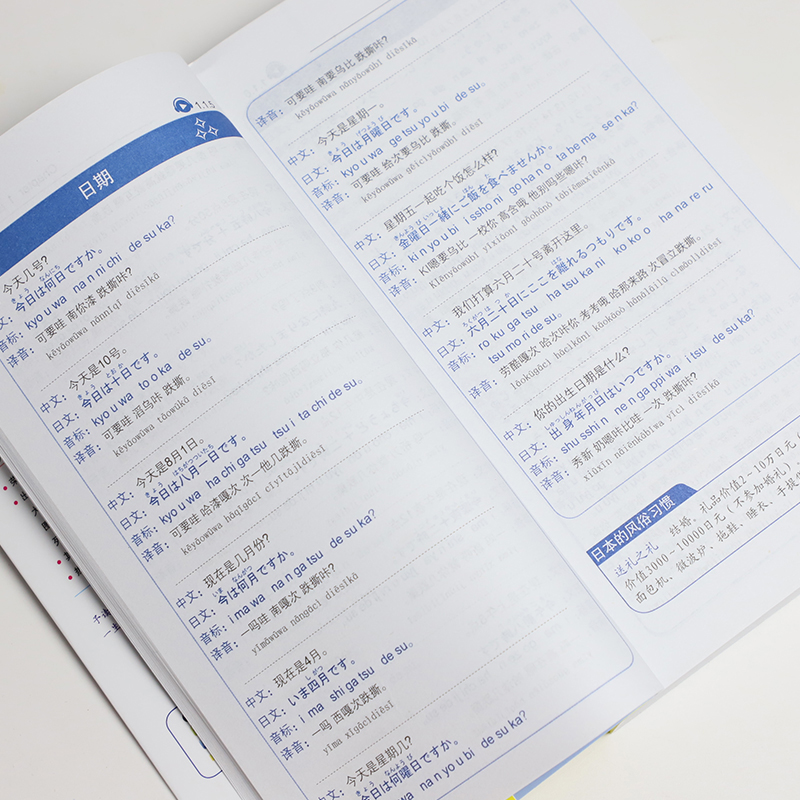 1.1.5
日期
今天几号?
きょう なんにち
今日は何日ですか。
kyo u wa na n ni chi de su ka?
可要哇 南你漆 跌撕咔?
kěyāowūwa nánnǐqī diēsīkā
中文: 今天是10号。
きょう とおか
日文: 今日は十日です。
音标: kyo u wa to o ka de su。
译音: 可要哇 滔乌咔 跌撕。
kěyāowūwa tāowūkā diēsī
中文: 今天是8月1日。
きょう はちがつついたち
日文: 今日は八月一日です。
音标: kyo u wa ha chi ga tsu tsu i ta chi de su。
译音: 可要哇 哈漆嘎次 次一他几跌撕。
kěyāowūwa hāqīgācì cìyītājǐdiēsī
中文: 现在是几月份?
いま なんがつ
日文: 今は何月ですか。
音标: i ma wa na n ga tsu de su ka?
译音: 一吗哇 南嘎次 跌撕咔?
yīmāwūwa nángācì diēsīkā
中文: 现在是4月。
しがつ
日文: いま四月です。
音标: i ma shi ga tsu de su。
译音: 一吗 西嘎次跌撕。
yīma xīgācìdiēsī
中文: 今天是星期几?
きょう なんようび
今日は何曜日ですか。
na n yo u bi de su ka?
译音: 可要哇 南要乌比 跌撕咔?
kěyāowūwa nányāowūbǐ diēsīkā
中文: 今天是星期一。
きょう げつようび
日文: 今日は月曜日です。
音标: kyo u wa ge tsu yo u bi de su。
译音: 可要哇 给次要乌比 跌撕。
kěyāowūwa gěicìyāowūbǐ diēsī
中文: 星期五一起吃个饭怎么样?
きんようび いっしょ はん た
日文: 金曜日一緒にご飯を食べませんか。
音标: ki n yo u bi i ssho ni go ha n o ta be ma se n ka?
译音: KI嗯要乌比 一校你 高合哦 他别吗些嗯咔?
中文: 我们打算六月二十号离开这里。
ろくがつ はつか はな
日文: 六月二十日にここを離れるつもりです。
音标: ro ku ga tsu ha tsu ka ni ko ko o ha na re ru
tsu mo ri de su。
译音: 劳酷嘎次 哈次咔你 考考哦 哈那来路 次冒立跌撕。
中文: 你的出生日期是什么?
しゅっしんねんがっぴ
日文: 出身年月日はいつですか。
音标: shu sshi n ne n ga ppi wa i tsu de su ka?
译音: 秀新 奶嗯咔比哇 一次 跌撕咔?
xiùxīn nǎiēnkābǐwa yīcì diēsīkā
日本的风俗习惯
送礼之礼 结婚、礼品价值2-10万日元,
价值3000-10000日元(不参加婚礼)
面包机、微波炉、拖鞋、睡衣、手提